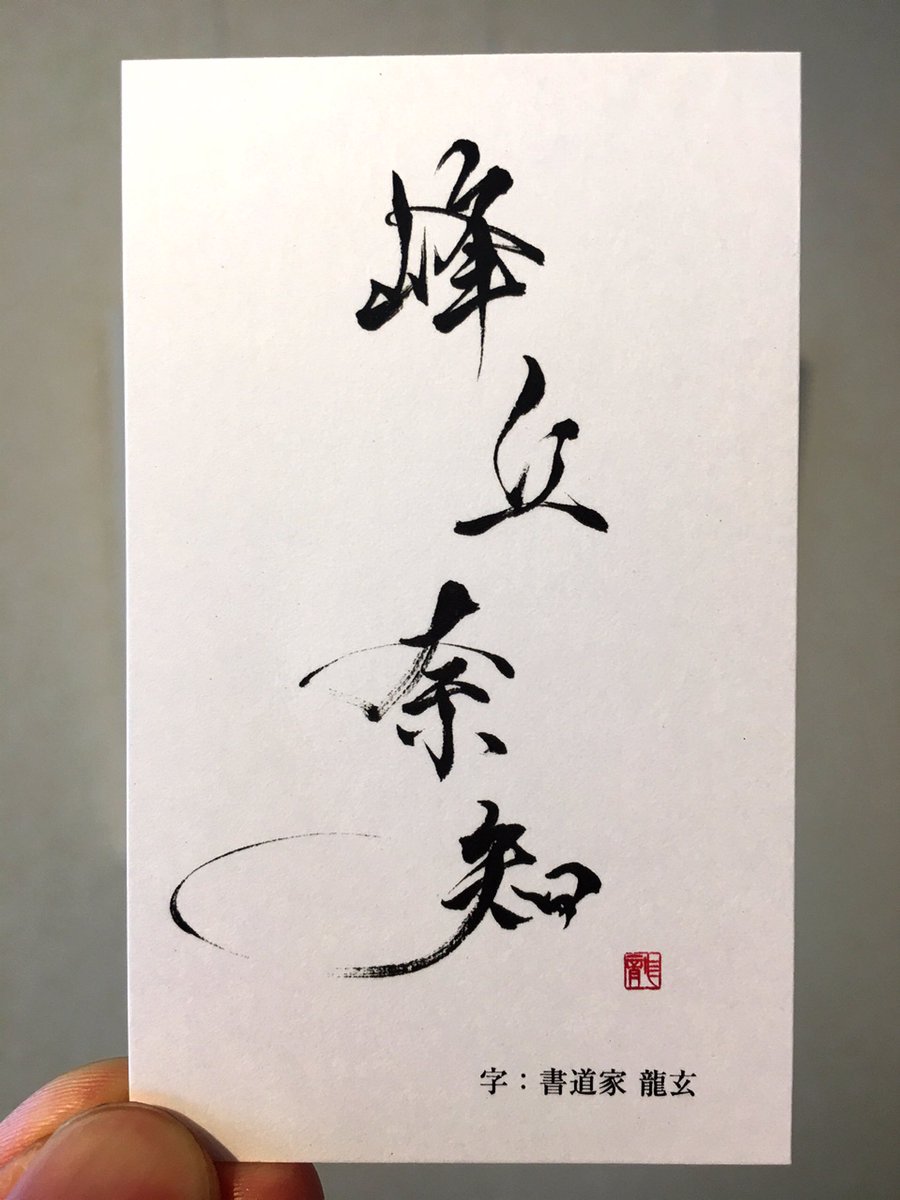 峰丘奈知
龍
字：書道家 龍玄